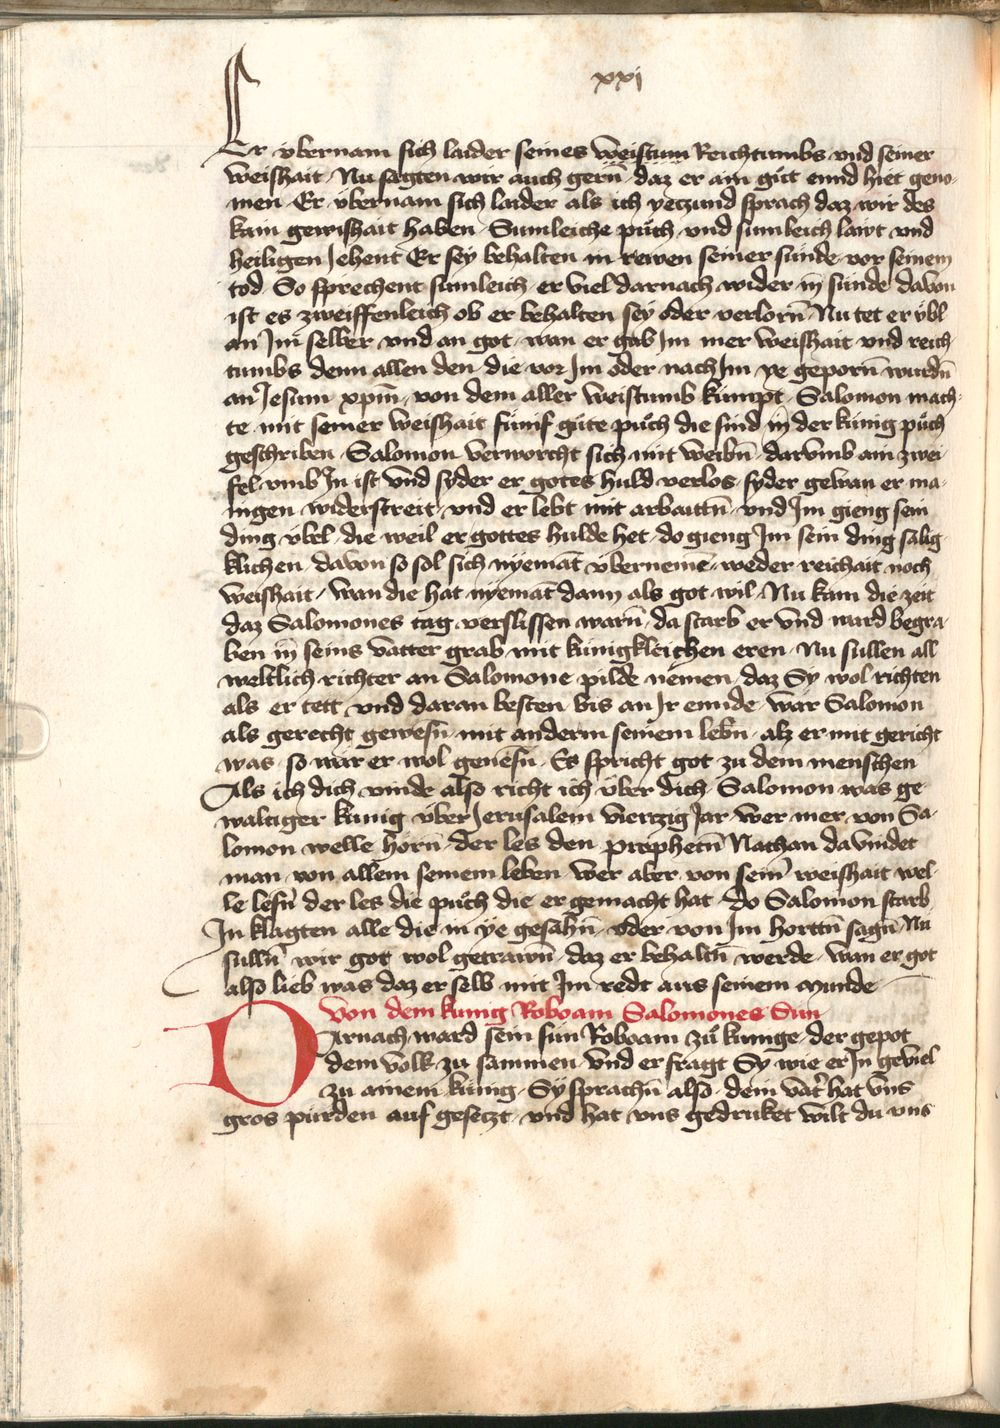 xxi
Er vbernam sich laider seines weistum Reichtumbs vnd seiner
weishait Nu sagten wir auch gern̄ daz er ain gůt ennd hiet geno-
men Er v̈bernam sich laider als ich yeczund sprach daz wir des
kain gewishait haben Sumleiche půch vnd sumleich lawt vnd
heiligen Jehent Er sey behalten in rewen seiner sünde vor seinem
tod So sprechent sumleich er viel darnach wider in sünde davon
ist es zweiffenleich ob er behalten sey oder verlorn̄ Nu tet er v̈bl
an Jm selber vnd an got wan er gab Jm mer weishait vnd reich
tumbs denn allen den die vor Jm oder nach Jm ye geporn̄ wurdn̄
an Jesum xpm̄ von dem aller weistumb kumpt Salomon mach-
te mit seiner weishait fünf gůte půch die sind in der künig půch
geschriben Salomon verworcht sich mit weibn̄ darvmb ain zwei
fel vmb Jn ist vnd syder er gotes huld verlos syder gewan er ma-
nigen widerstreit vnd er lebt mit arbaitn̄ vnd Jm gieng sein
ding v̈bel die weil er gottes hulde het do gieng Jm sein ding sälig
klichen davon so sol sich nyemāt v̈bernemē weder reichait noch
weishait wan die hat nyemāt dann als got wil Nu kam die zeit
daz Salomones tag verslissen warn̄ da starb er vnd ward begra-
ben in seins vatter grab mit künigkleichen eren Nu sullen all
weltlich richter an Salomone pilde nemen daz Sy wol richten
als er tett vnd daran besten bis an Jr ennde wär Salomon
als gerecht gewesn̄ mit anderm seinem lebn̄ alz er mit gericht
was so wär er wol genesn̄ Es spricht got zu dem menschen
Als ich dich vinde also richt ich über dich Salomon was ge-
waltiger künig über Jerusalem viertzig Jar wer mer von Sa-
lomon welle hörn̄ der les den prophetn̄ Nathan da vindet
man von allem seinem leben wer aber von sein̄ weishait wel-
le lesn̄ der les die půch die er gemacht hat do Salomon starb
Jn klagten alle die in ye gesähn̄ oder von Jm horttn̄ sagn̄ Nu
sulln̄ wir got wol getrawn̄ daz er behaltn̄ werde wan er got
also lieb was daz er selb mit Jm redt aus seinem munde
Von dem kunig Roboam Salomones Sun
Darnach ward sein sun Roboam zů kunige der gepot
dem volk zu sammen vnd er fragt Sy wie er Jn geviel
zu ainem künig Sy sprachn̄ also dein vat̄ hat vns
gros purden auf gesetzt vnd hat vns gedruket wilt du vns